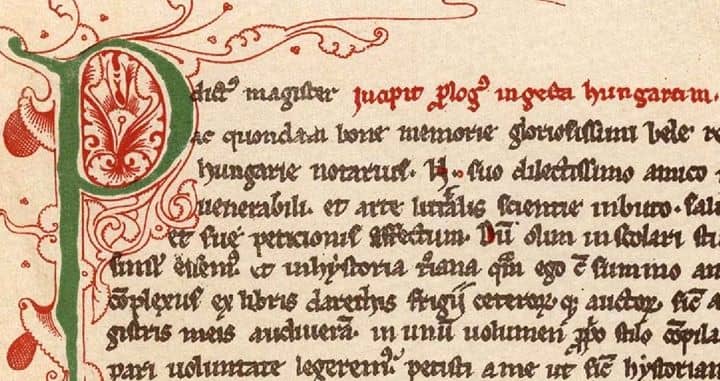 P dict⁹ magister Incipit ꝓlog⁹ in gesta hungarum.
ac quondam bone memorie gloriosissimi bele re
hungarie notarius. N. suo dilectissimo amico
uenerabili. et arte litt̃alis scientie inbuto. sal
et sue peticionis effectum. Dū olim in scolari st
simul essem⁹ et in hystoria t̃iana qm̃ ego c̄ summo am
cōplexus ex libris darethis frigii ceteroꝝ qꝫ auctoꝝ sic̄ a
gistris meis audiuerā. in unū uolumen ꝓꝓo stilo cōpila
pari uoluntate legerem⁹. petisti a me ut sic̄ hystoriam